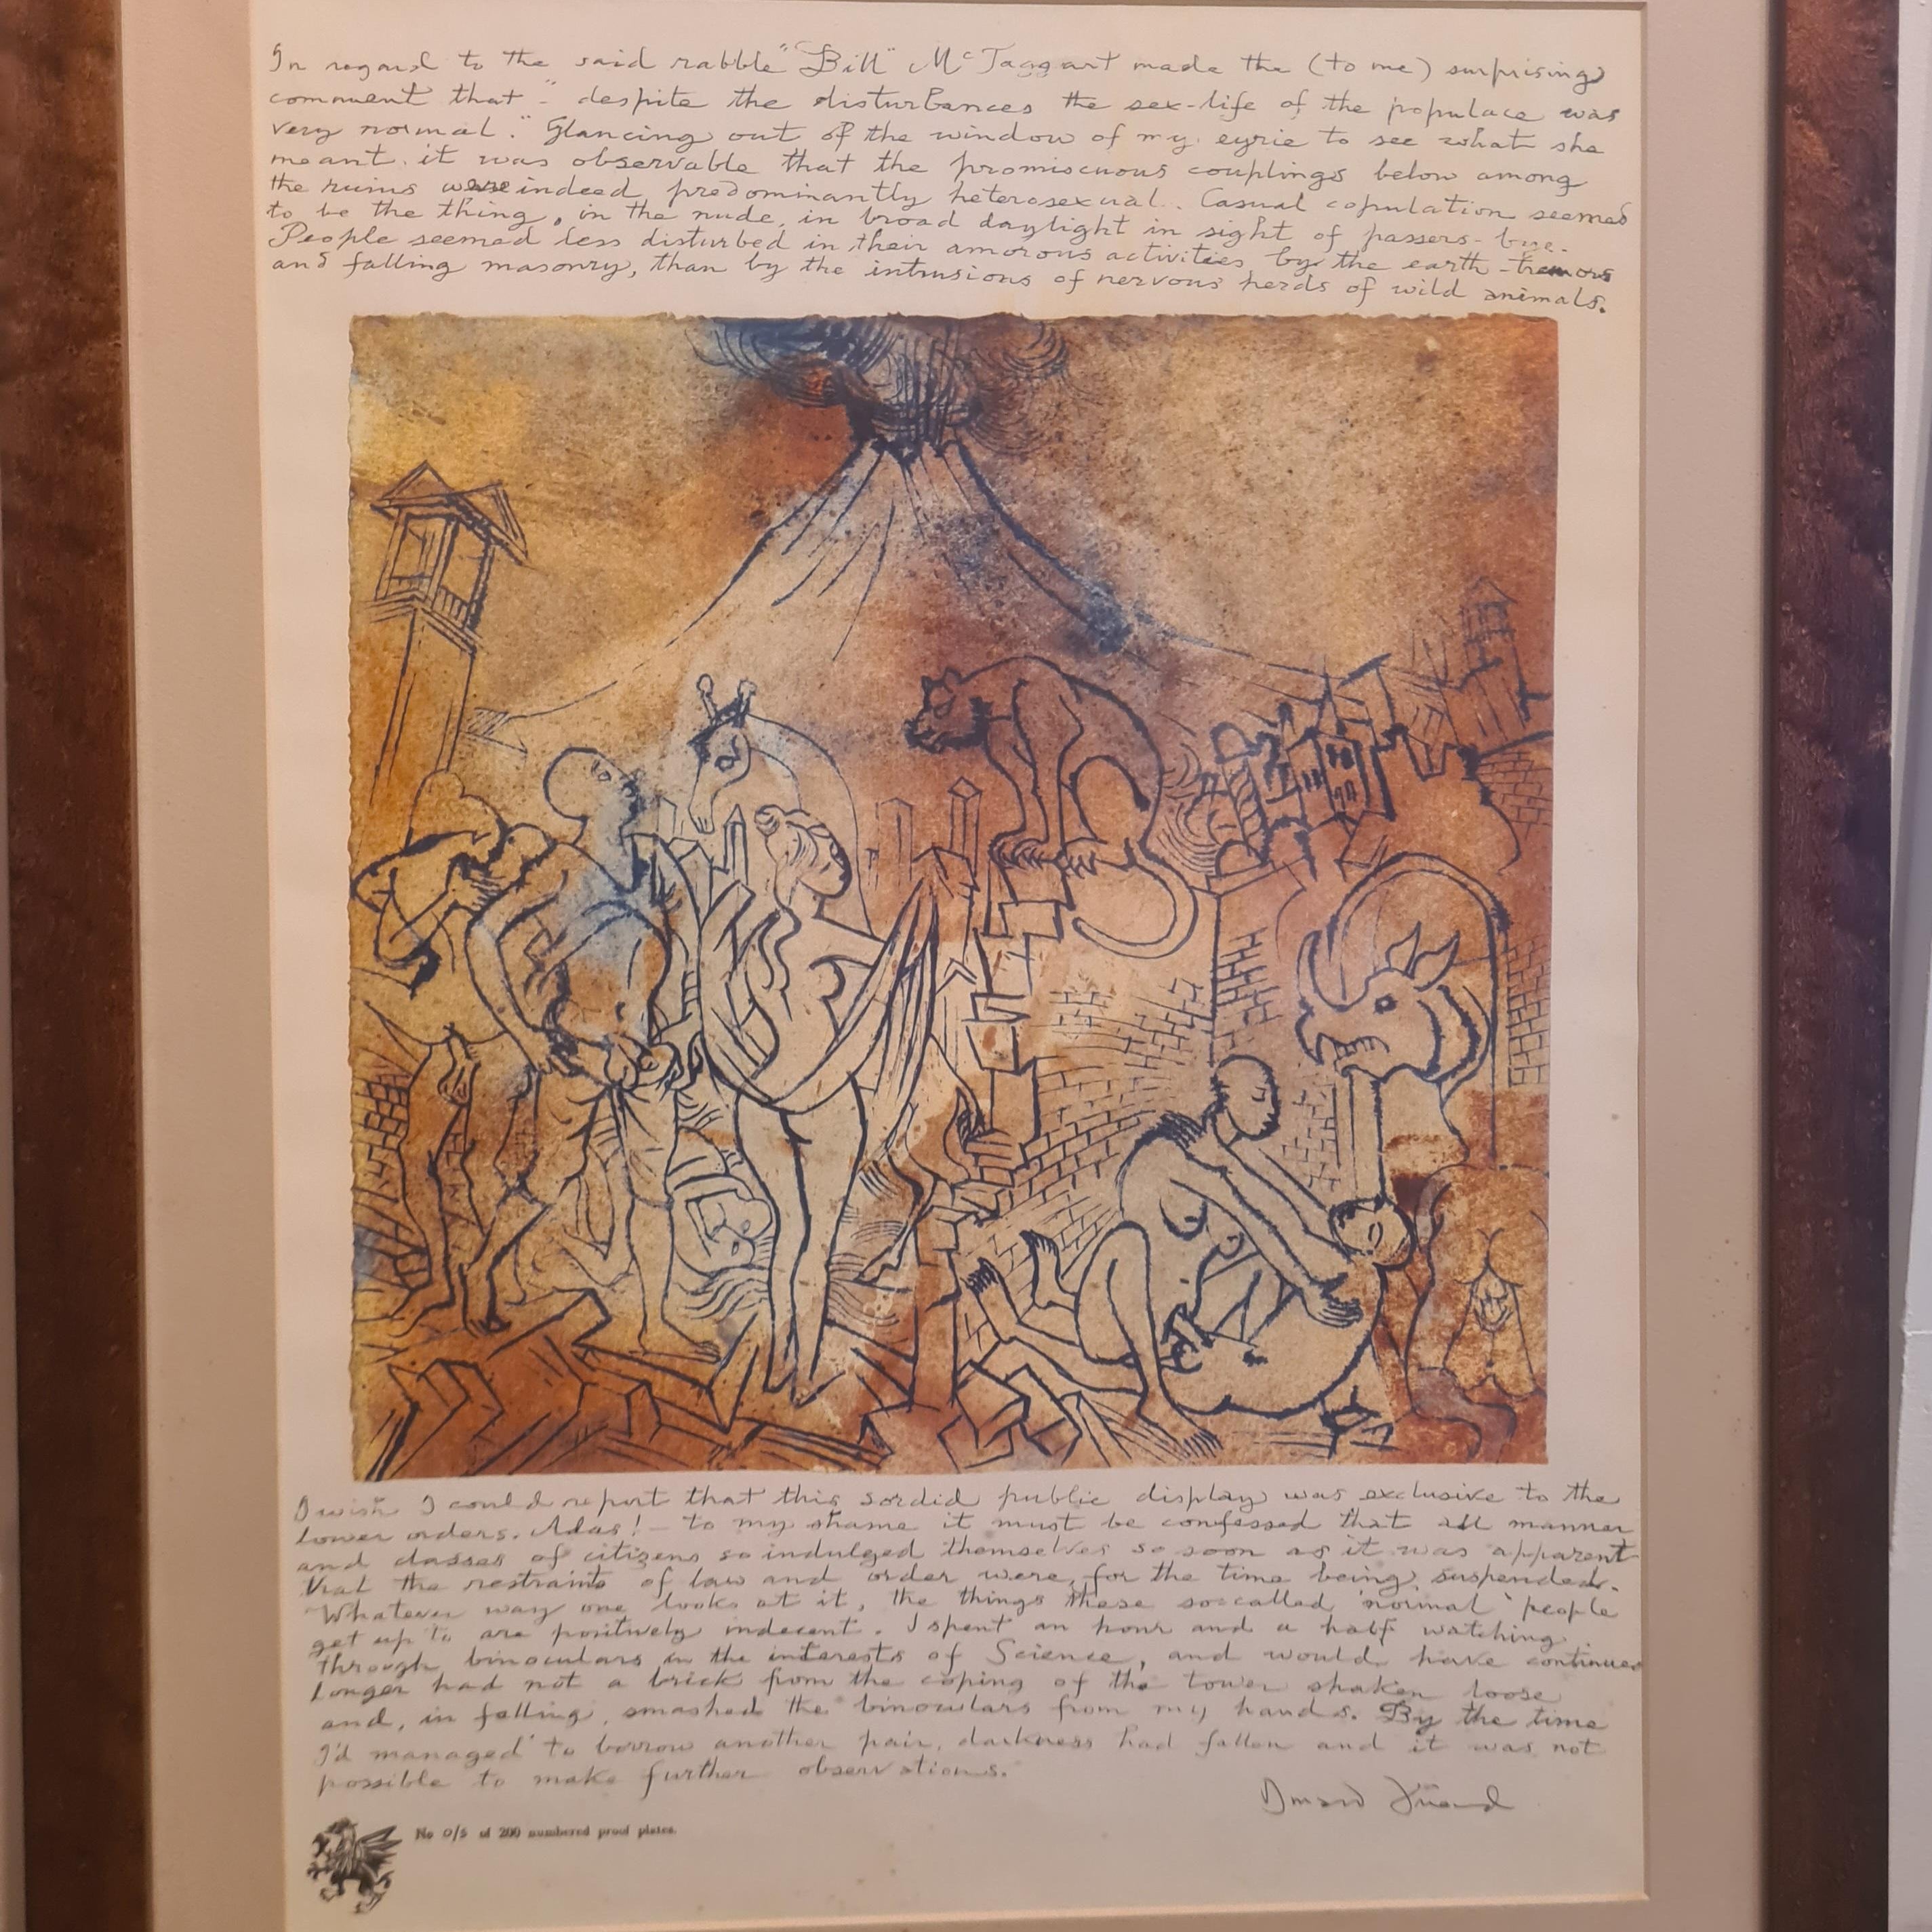 In regard to the said rabble "Bill" McTaggart made the (to me) surprising
comment that - "despite the disturbances the sex-life of the populace was
very normal." Glancing out of the window of my eyrie to see what she
meant, it was observable that the promiscuous couplings below among
the ruins were indeed predominantly heterosexual. Casual copulation seemed
to be the thing, in the nude, in broad daylight in sight of passers-bye.
People seemed less disturbed in their amorous activities by the earth-tremors
and falling masonry, than by the intrusions of nervous herds of wild animals.
I wish I could report that this sordid public display was exclusive to the
lower orders. Alas! - to my shame it must be confessed that all manner
and classes of citizens so indulged themselves so soon as it was apparent
that the restraints of law and order were, for the time being, suspended.
Whatever way one looks at it, the things these so-called 'normal' people
get up to are positively indecent. I spent an hour and a half watching
through binoculars in the interests of Science, and would have continued
longer had not a brick from the coping of the tower shaken loose
and, in falling, smashed the binoculars from my hands. By the time
I'd managed to borrow another pair, darkness had fallen and it was not
possible to make further observations.
No 0/5 of 200 numbered proof plates.